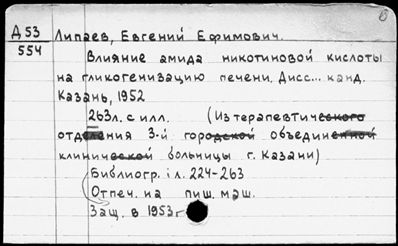 Д53 Липаев, Евгений Ефимович.
554
Влияние амида никотиновой кислоты
на гликогенизацию печени. Дисс... канд.
Казань, 1952
263л. с илл. (Из терапевтического
отделения 3-й городской объединенной
клинической больницы г. Казани)
Библиогр: л. 224-263
Отпеч. на пиш. маш.
Защ. в 1953г